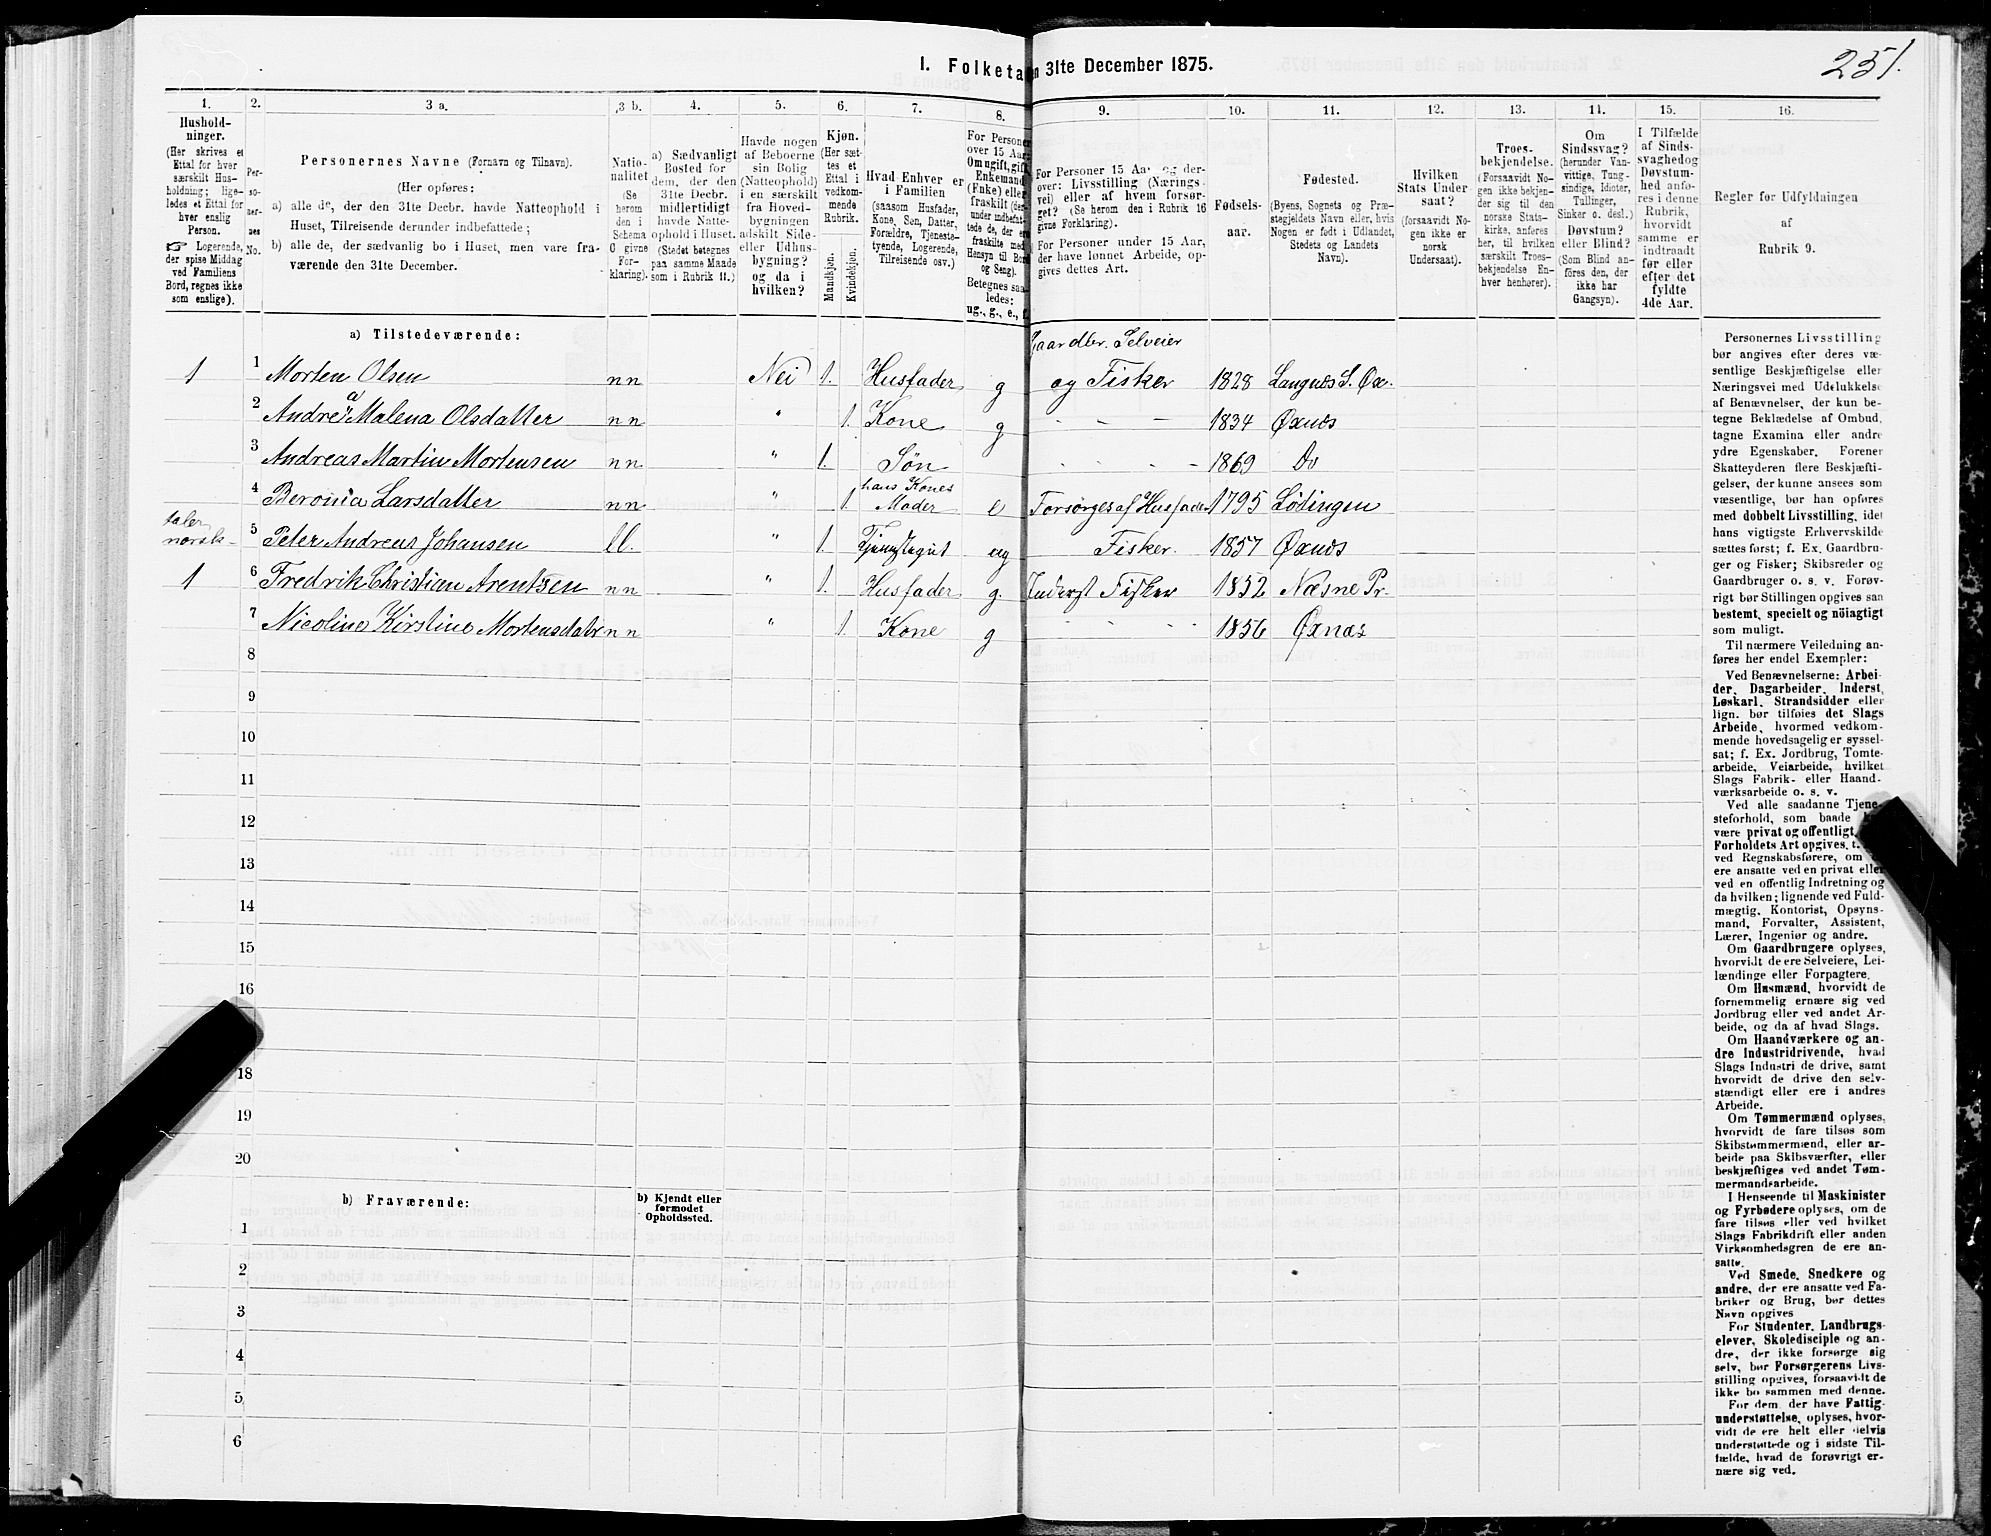 251.
1. Folketa n 31te December 1875.
1. 2. 3 a. 3 b. 4. 5. 6. 7. 8. 9. 10. 11. 12. 13. 14. 15. 16.
Hushold-
ninger.
(Her skrives et
Ettal for hver
særskilt Hus-
holdning; lige-
ledes et Ettal for
hver enslig
Person.
☞ Logerende,
der spise Middag
ved Familiens
Bord, regnes ikke
som enslige).
Per-
so-
ner-
nes
No.
Personernes Navne (Fornavn og Tilnavn).
(Her opføres:
a) alle de, der den 31te Decbr. havde Natteophold i
Huset, Tilreisende derunder indbefattede;
b) alle de, der sædvanlig bo i Huset, men vare fra-
værende den 31te December.
Natio-
nalitet
(Se
herom
den i
Schema
O givne
For-
klaring).
a) Sædvanligt
Bosted for
dem, der den
31te Decbr.
midlertidigt
havde Natte-
ophold i Huset.
(Stedet betegnes
paa samme Maade
som i Rubrik 11.)
Havde nogen
af Beboerne
sin Bolig
(Natteophold)
i en særskilt
fra Hoved-
bygningen
adskilt Side-
eller Udhus-
bygning?
og da i
hvilken?
Kjøn.
(Her sæt-
tes et
Ettal i
vedkom-
mende
Rubrik.
Mandkjøn.
Kvindekjøn.
Hvad Enhver er
i Familien
(saasom Husfader,
Kone, Søn, Datter,
Forældre, Tjeneste-
tyende, Logerende,
Tilreisende osv.)
For Personer
over 15 Aar:
Om ugift, gift,
Enkemand
(Enke) eller
fraskilt (der-
under indbefat-
tede de, der ere
fraskilte med
Hensyn til Bord
og Seng).
Betegnes saa-
ledes:
ug., g., e., f.
For Personer 15 Aar og der-
over: Livsstilling (Nærings-
vei) eller af hvem forsør-
get? (Se herom den i Rubrik 16
givne Forklaring).
For Personer under 15 Aar,
der have lønnet Arbeide, op-
gives dettes Art.
Fødsels-
aar.
Fødested.
(Byens, Sognets og Præ-
stegjeldets Navn eller, hvis
Nogen er født i Udlandet,
Stedets og Landets
Navn).
Hvilken
Stats Under-
saat?
(forsaavidt No-
gen ikke er
norsk
Undersaat).
Troes-
bekjendelse.
(Forsaavidt No-
gen ikke bekjen-
der sig til den
norske Stats-
kirke, anføres
her, til hvilken
særskilt Troes-
bekjendelse En-
hver henhører).
Om
Sindssvag?
(herunder Van-
vittige, Tung-
sindige, Idioter,
Tallinger,
Sinker o. desl.)
Døvstum?
eller Blind?
(Som Blind an-
føres den, der
ikke har
Gangsyn).
I Tilfælde
af Sinds-
svaghed og
Døvstum-
hed anfø-
res i denne
Rubrik,
hvorvidt
samme er
indtraadt
før eller
efter det
fyldte
4de Aar.
Regler for Udfyldningen
af
Rubrik 9.
a) Tilstedeværende:
Gaardbr. Selveier
1 1 Morten Olsen nn Nei 1. Husfader g og Fisker 1828 Langnes S. Øx.
2 Andrea Malena Olsdatter nn " 1. Kone g - - 1834 Øxnes
3 Andreas Martin Mortensen nn " 1. Søn 1869 Do
4 Beronia Larsdatter nn " 1 hans Kones Moder e Forsørges af Husfader 1795 Lødingen
taler norsk 5 Peter Andreas Johansen ll. " 1. Tjenestegut ug Fisker. 1857 Øxnes
1 6 Fredrik Christian Arentsen nn " 1. Husfader g. Inderst Fisker 1852 Næsne Pr.
7 Nicoline Kirstine Mortensdatr nn " 1. Kone g 1856 Øxnæs
8
9
10
11
12
13
14
15
16
18
19
20
b) Fraværende:
b) Kjendt eller
formodet
Opholdssted.
1
2
3
4
5
6
Personernes Livsstilling
bør angives efter deres væ-
sentlige Beskjæftigelse eller
Næringsvei med Udelukkelse
af Benævnelser, der kun be-
tegne Beklædelse af Ombud,
tagne Examina eller andre
ydre Egenskaber. Forener
Skatteyderen flere Beskjæfti-
gelser, der kunne ansees som
væsentlige, bør han opføres
med dobbelt Livsstilling, idet
hans vigtigste Erhvervskilde
sættes først; f. Ex. Gaardbru-
ger og Fisker; Skibsreder og
Gaardbruger o. s. v. Forøv-
rigt bør Stillingen opgives saa
bestemt, specielt og nöiagtigt
som muligt.
Til nærmere Veiledning an-
føres her endel Exempler:
Ved Benævnelserne: Arbei-
der, Dagarbeider, Inderst,
Løskarl, Strandsidder eller
lign. bør tilføies det Slags
Arbeide, hvormed vedkom-
mende hovedsagelig er syssel-
sat; f. Ex. Jordbrug, Tomte-
arbeide, Veiarbeide, hvilket
Slags Fabrik- eller Haand-
værksarbeide o. s. v.
Ved alle saadanne Tjene-
steforhold, som baade
være privat og offentligt,
Forholdets Art opgives, t.
ved Regnskabsførere, om
ere ansatte ved en privat eller
ved en offentlig Indretning og
da hvilken; lignende ved Fuld-
mægtig, Kontorist, Opsyns-
mand, Forvalter, Assistent,
Lærer, Ingeniør og andre.
Om Gaardbrugere oplyses,
hvorvidt de ere Selveiere, Lei-
lændinge eller Forpagtere.
Om Husmænd, hvorvidt de
fornemmelig ernære sig ved
Jordbrug eller ved andet Ar-
beide, og da af hvad Slags.
Om Haandværkere og an-
dre Industridrivende, hvad
Slags Industri de drive, samt
hvorvidt de drive den selv-
stændigt eller ere i andres
Arbeide.
Om Tømmermænd oplyses,
hvorvidt de fare tilsøs som
Skibstømmermænd, eller ar-
beide paa Skibsværfter, eller
beskjæftiges ved andet Tøm-
mermandsarbeide.
I Henseende til Maskinister
og Fyrbødere oplyses, om de
fare tilsøs eller ved hvilket
Slags Fabrikdrift eller anden
Virksomhedsgren de ere an-
satte.
Ved Smede, Snedkere og
andre, der ere ansatte ved Fa-
briker og Brug, bør dettes
Navn opgives
For Studenter, Landbrugs-
elever, Skoledisciple og an-
dre, der ikke forsørge sig
selv, bør Forsørgerens Livs-
stilling opgives, forsaavidt de
ikke bo sammen med denne.
For dem, der have Fattig-
understøttelse, oplyses, hvor-
vidt de ere helt eller delvis
understøttede og i sidste Til-
fælde, hvad de forøvrigt er-
nære sig ved.